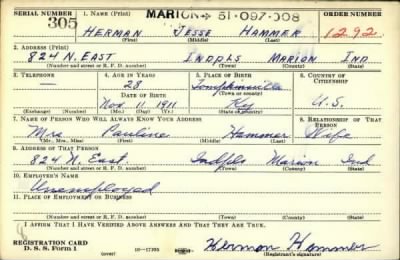 SERIAL NUMBER 1. NAME (Print) MARION 51-097-008 ORDER NUMBER
305 HERMAN JESSE HAMMER 1292
(First) (Middle) (Last)
2. ADDRESS (Print)
824 N. EAST INDPLS MARION IND
(Number and street or R. F. D. number) (Town) (County) (State)
3. TELEPHONE 4. AGE IN YEARS 5. PLACE OF BIRTH 6. COUNTRY OF CITIZENSHIP
— 28 Tompkinsville
DATE OF BIRTH (Town or county)
Nov. 11 1911 Ky U.S.
(Exchange) (Number) (Mo.) (Day) (Yr.) (State or country)
7. NAME OF PERSON WHO WILL ALWAYS KNOW YOUR ADDRESS 8. RELATIONSHIP OF THAT PERSON
Mrs Pauline Hammer Wife
(Mr., Mrs., Miss) (First) (Middle) (Last)
9. ADDRESS OF THAT PERSON
824 N. East Indpls Marion Ind
(Number and street or R. F. D. number) (Town) (County) (State)
10. EMPLOYER'S NAME
Unemployed
11. PLACE OF EMPLOYMENT OR BUSINESS
(Number and street or R. F. D. number) (Town) (County) (State)
I AFFIRM THAT I HAVE VERIFIED ABOVE ANSWERS AND THAT THEY ARE TRUE.
REGISTRATION CARD
D. S. S. Form 1 (over) Herman Hammer
(Registrant's signature)